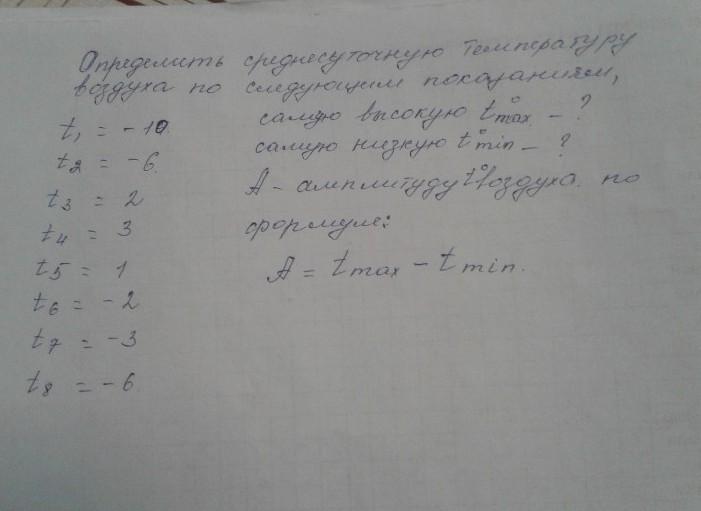 Определить среднесуточную температуру
воздуха по следующим показаниям,
самую высокую t°max - ?
самую низкую t°min - ?
А - амплитуду t° воздуха по
формуле:
А = tmax - tmin.
t1 = -10
t2 = -6
t3 = 2
t4 = 3
t5 = 1
t6 = -2
t7 = -3
t8 = -6